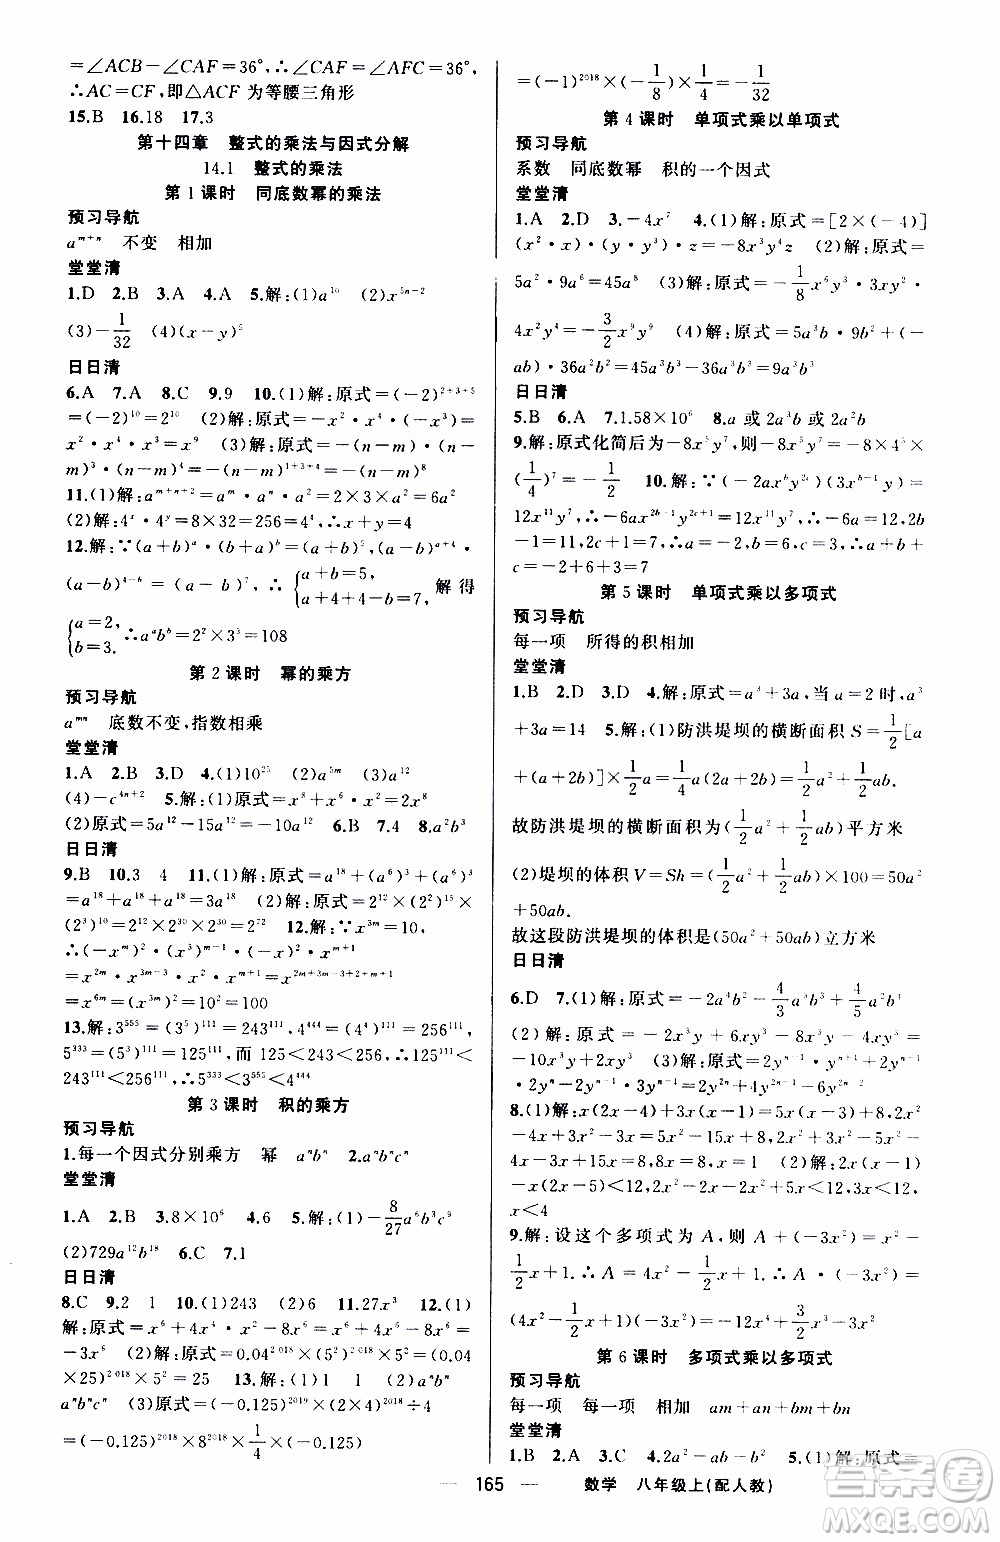 =∠ACB-∠CAF=36°,∴∠CAF=∠AFC=36°,
∴AC=CF,即△ACF 为等腰三角形
15.B 16.18 17.3
第十四章 整式的乘法与因式分解
14.1 整式的乘法
第 1 课时 同底数幂的乘法
预习导航
aᵐ⁺ⁿ 不变 相加
堂堂清
1.D 2.B 3.A 4.A 5.解:(1)a¹⁰ (2)x⁵ⁿ⁻²
(3)-1/32 (4)(x-y)⁵
日日清
6.A 7.A 8.C 9.9 10.(1)解:原式=(-2)²⁺³⁺⁵
=(-2)¹⁰=2¹⁰ (2)解:原式=-x²·x⁴·(-x³)=
x²·x⁴·x³=x⁹ (3)解:原式=-(n-m)·(n-
m)³·(n-m)⁴=-(n-m)¹⁺³⁺⁴=-(n-m)⁸
11.(1)解:aᵐ⁺ⁿ⁺²=aᵐ·aⁿ·a²=3×2×a²=6a²
(2)解:4ˣ·4ʸ=8×32=256=4⁴,∴x+y=4
12.解:∵(a+b)ᵃ·(b+a)ᵇ=(a+b)⁵,(a-b)ᵃ⁺⁴·
(a-b)⁴⁻ᵇ=(a-b)⁷,∴{a+b=5, a+4+4-b=7, 解得
{a=2, b=3. ∴aᵃbᵇ=2²×3³=108
第 2 课时 幂的乘方
预习导航
aᵐⁿ 底数不变,指数相乘
堂堂清
1.A 2.B 3.D 4.(1)10²⁵ (2)a⁵ᵐ (3)a¹²
(4)-c⁴ⁿ⁺² 5.解:(1)原式=x⁸+x⁶·x²=2x⁸
(2)原式=5a¹²-15a¹²=-10a¹² 6.B 7.4 8.a²b³
日日清
9.B 10.3 4 11.(1)解:原式=a¹⁸+(a⁶)³+(a⁶)³
=a¹⁸+a¹⁸+a¹⁸=3a¹⁸ (2)解:原式=2¹²×(2²)¹⁵×
(2³)¹⁰=2¹²×2³⁰×2³⁰=2⁷² 12.解:∵x³ᵐ=10,
∴(-xᵐ)²·(x³)ᵐ⁻¹·x²·xᵐ⁺¹
=x²ᵐ·x³ᵐ⁻³·x²·xᵐ⁺¹
=x⁶ᵐ=(x³ᵐ)²=10²=100
13.解:3⁵⁵⁵=(3⁵)¹¹¹=243¹¹¹,4⁴⁴⁴=(4⁴)¹¹¹=256¹¹¹,
5³³³=(5³)¹¹¹=125¹¹¹,而 125<243<256,∴125¹¹¹<
243¹¹¹<256¹¹¹,∴5³³³<3⁵⁵⁵<4⁴⁴⁴
第 3 课时 积的乘方
预习导航
1.每一个因式分别乘方 幂 aⁿbⁿ 2.aⁿbⁿcⁿ
堂堂清
1.A 2.B 3.8×10⁶ 4.6 5.解:(1)-8/27a⁶b³c⁹
(2)729a¹²b¹⁸ 6.C 7.1
日日清
8.C 9.2 1 10.(1)243 (2)6 11.27x³ 12.(1)
解:原式=x⁶-4x⁴·x²-x³·x³=x⁶-4x⁶=
-3x⁶ (2)解:原式=0.04²⁰¹⁸×(5²)²⁰¹⁸×5²=(0.04
×25)²⁰¹⁸×5²=25 13.解:(1)1 1 (2)aⁿbⁿ
aⁿbⁿcⁿ (3)原式=(-0.125)²⁰¹⁹×2²⁰¹⁸×4²⁰¹⁸÷4
=(-0.125)²⁰¹⁸×8²⁰¹⁸×1/4×(-0.125)
=(-1)²⁰¹⁸×(-1/8)×1/4=-1/32
第 4 课时 单项式乘以单项式
预习导航
系数 同底数幂 积的一个因式
堂堂清
1.A 2.D 3.-4x⁷ 4.(1)解:原式=[2×(-4)]
(x²·x)·(y·y³)·z=-8x³y⁴z (2)解:原式=
5a²·9a⁶=45a⁸ (3)解:原式=-1/8x⁶y³·
4x³y⁶=-3/2x⁹y⁹ (4)解:原式=5a³b·9b²+(-
ab)·36a²b²=45a³b³-36a³b³=9a³b³
日日清
5.B 6.A 7.1.58×10⁶ 8.a 或 2a³b 或 2a²b
9.解:原式化简后为-8x⁵y⁷,则-8x⁵y⁷=-8×4⁵×
(1/4)⁷=-1/2 10.解:∵(-2axᵇy²ᶜ)(3xᵇ⁻¹y)=
12x¹¹y⁷,∴-6ax²ᵇ⁻¹y²ᶜ⁺¹=12x¹¹y⁷,∴-6a=12,2b
-1=11,2c+1=7,∴a=-2,b=6,c=3,∴a+b+
c=-2+6+3=7
第 5 课时 单项式乘以多项式
预习导航
每一项 所得的积相加
堂堂清
1.B 2.D 3.D 4.解:原式=a³+3a,当 a=2 时,a³
+3a=14 5.解:(1)防洪堤坝的横断面积 S=1/2[a
+(a+2b)]×1/2a=1/4a(2a+2b)=1/2a²+1/2ab.
故防洪堤坝的横断面积为(1/2a²+1/2ab)平方米
(2)堤坝的体积 V=Sh=(1/2a²+1/2ab)×100=50a²
+50ab.
故这段防洪堤坝的体积是(50a²+50ab)立方米
日日清
6.D 7.(1)解:原式=-2a⁴b²-4/3a³b³+4/5a²b⁴
(2)解:原式=-4x³y+6xy-6x³y-8xy=
-10x³y-2xy (3)解:原式=2yⁿ⁻¹·yⁿ⁺¹+4yⁿ⁻¹
·3yⁿ-2yⁿ⁻¹=2y²ⁿ+12y²ⁿ⁻¹-2yⁿ⁻¹
8.(1)解:2x(5-4x)+15x=5x-2x(4x-3),2x²
-8x²+15x=5x-8x²+6x,10x+15x-5x-6x
=-4,14x=-4,x=-2/7 (2)解:2x(x-1)
-x(2x-5)<12,2x²-2x-2x²+5x<12,3x<12,
x<4
9.解:设这个多项式为 A,则 A+(-3x²)=x²-
1/2x+1.∴A=4x²-1/2x+1.∴A·(-3x²)=
(4x²-1/2x+1)(-3x²)=-12x⁴+3/2x³-3x²
第 6 课时 多项式乘以多项式
预习导航
每一项 每一项 相加 am+an+bm+bn
堂堂清
1.B 2.A 3.C 4.2a²-ab-b² 5.(1)解:原式=
165 数学 八年级上(配人教)
答案圈
MXQE.COM